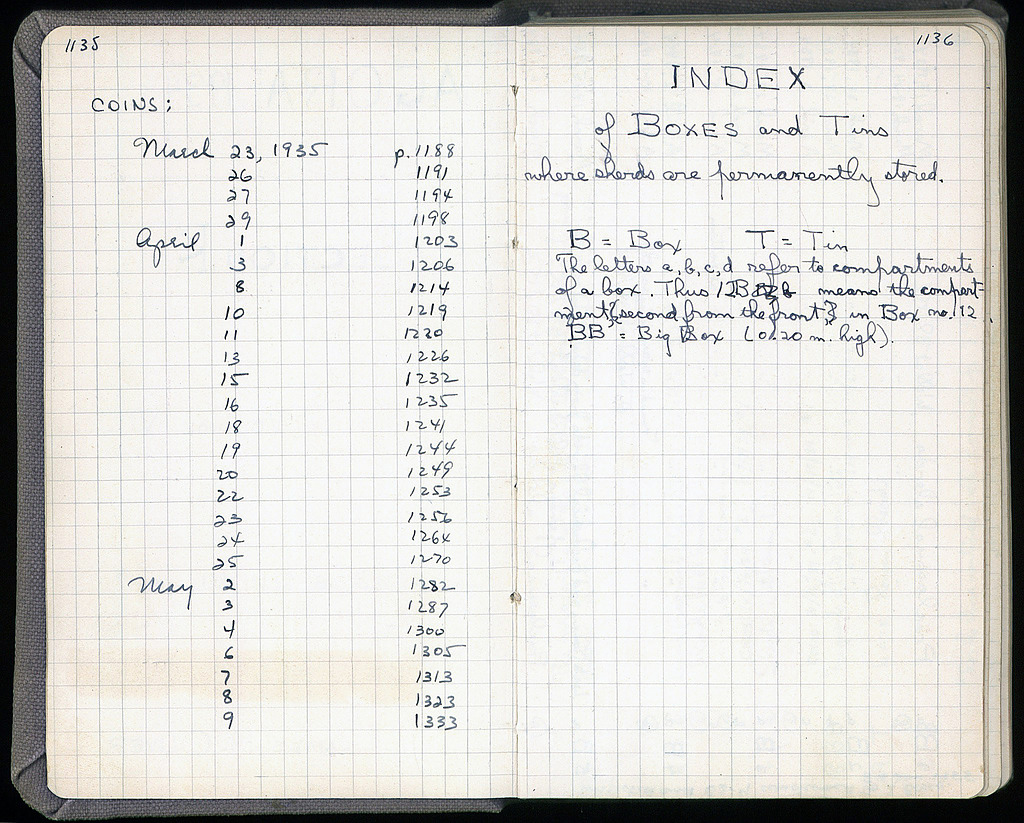 1135
COINS:
March 23, 1935 p. 1188
26 1191
27 1194
29 1198
April 1 1203
3 1206
8 1214
10 1219
11 1220
13 1226
15 1232
16 1235
18 1241
19 1244
20 1249
22 1253
23 1256
24 1264
25 1270
May 2 1282
3 1287
4 1300
6 1305
7 1313
8 1323
9 1333
1136
INDEX
of BOXES and Tins
where sherds are permanently stored.
B = Box T = Tin
The letters a, b, c, d refer to compartments
of a box. Thus 12B b means the compart-
ment (second from the front) in Box no. 12.
BB = Big Box (0.20 m. high).